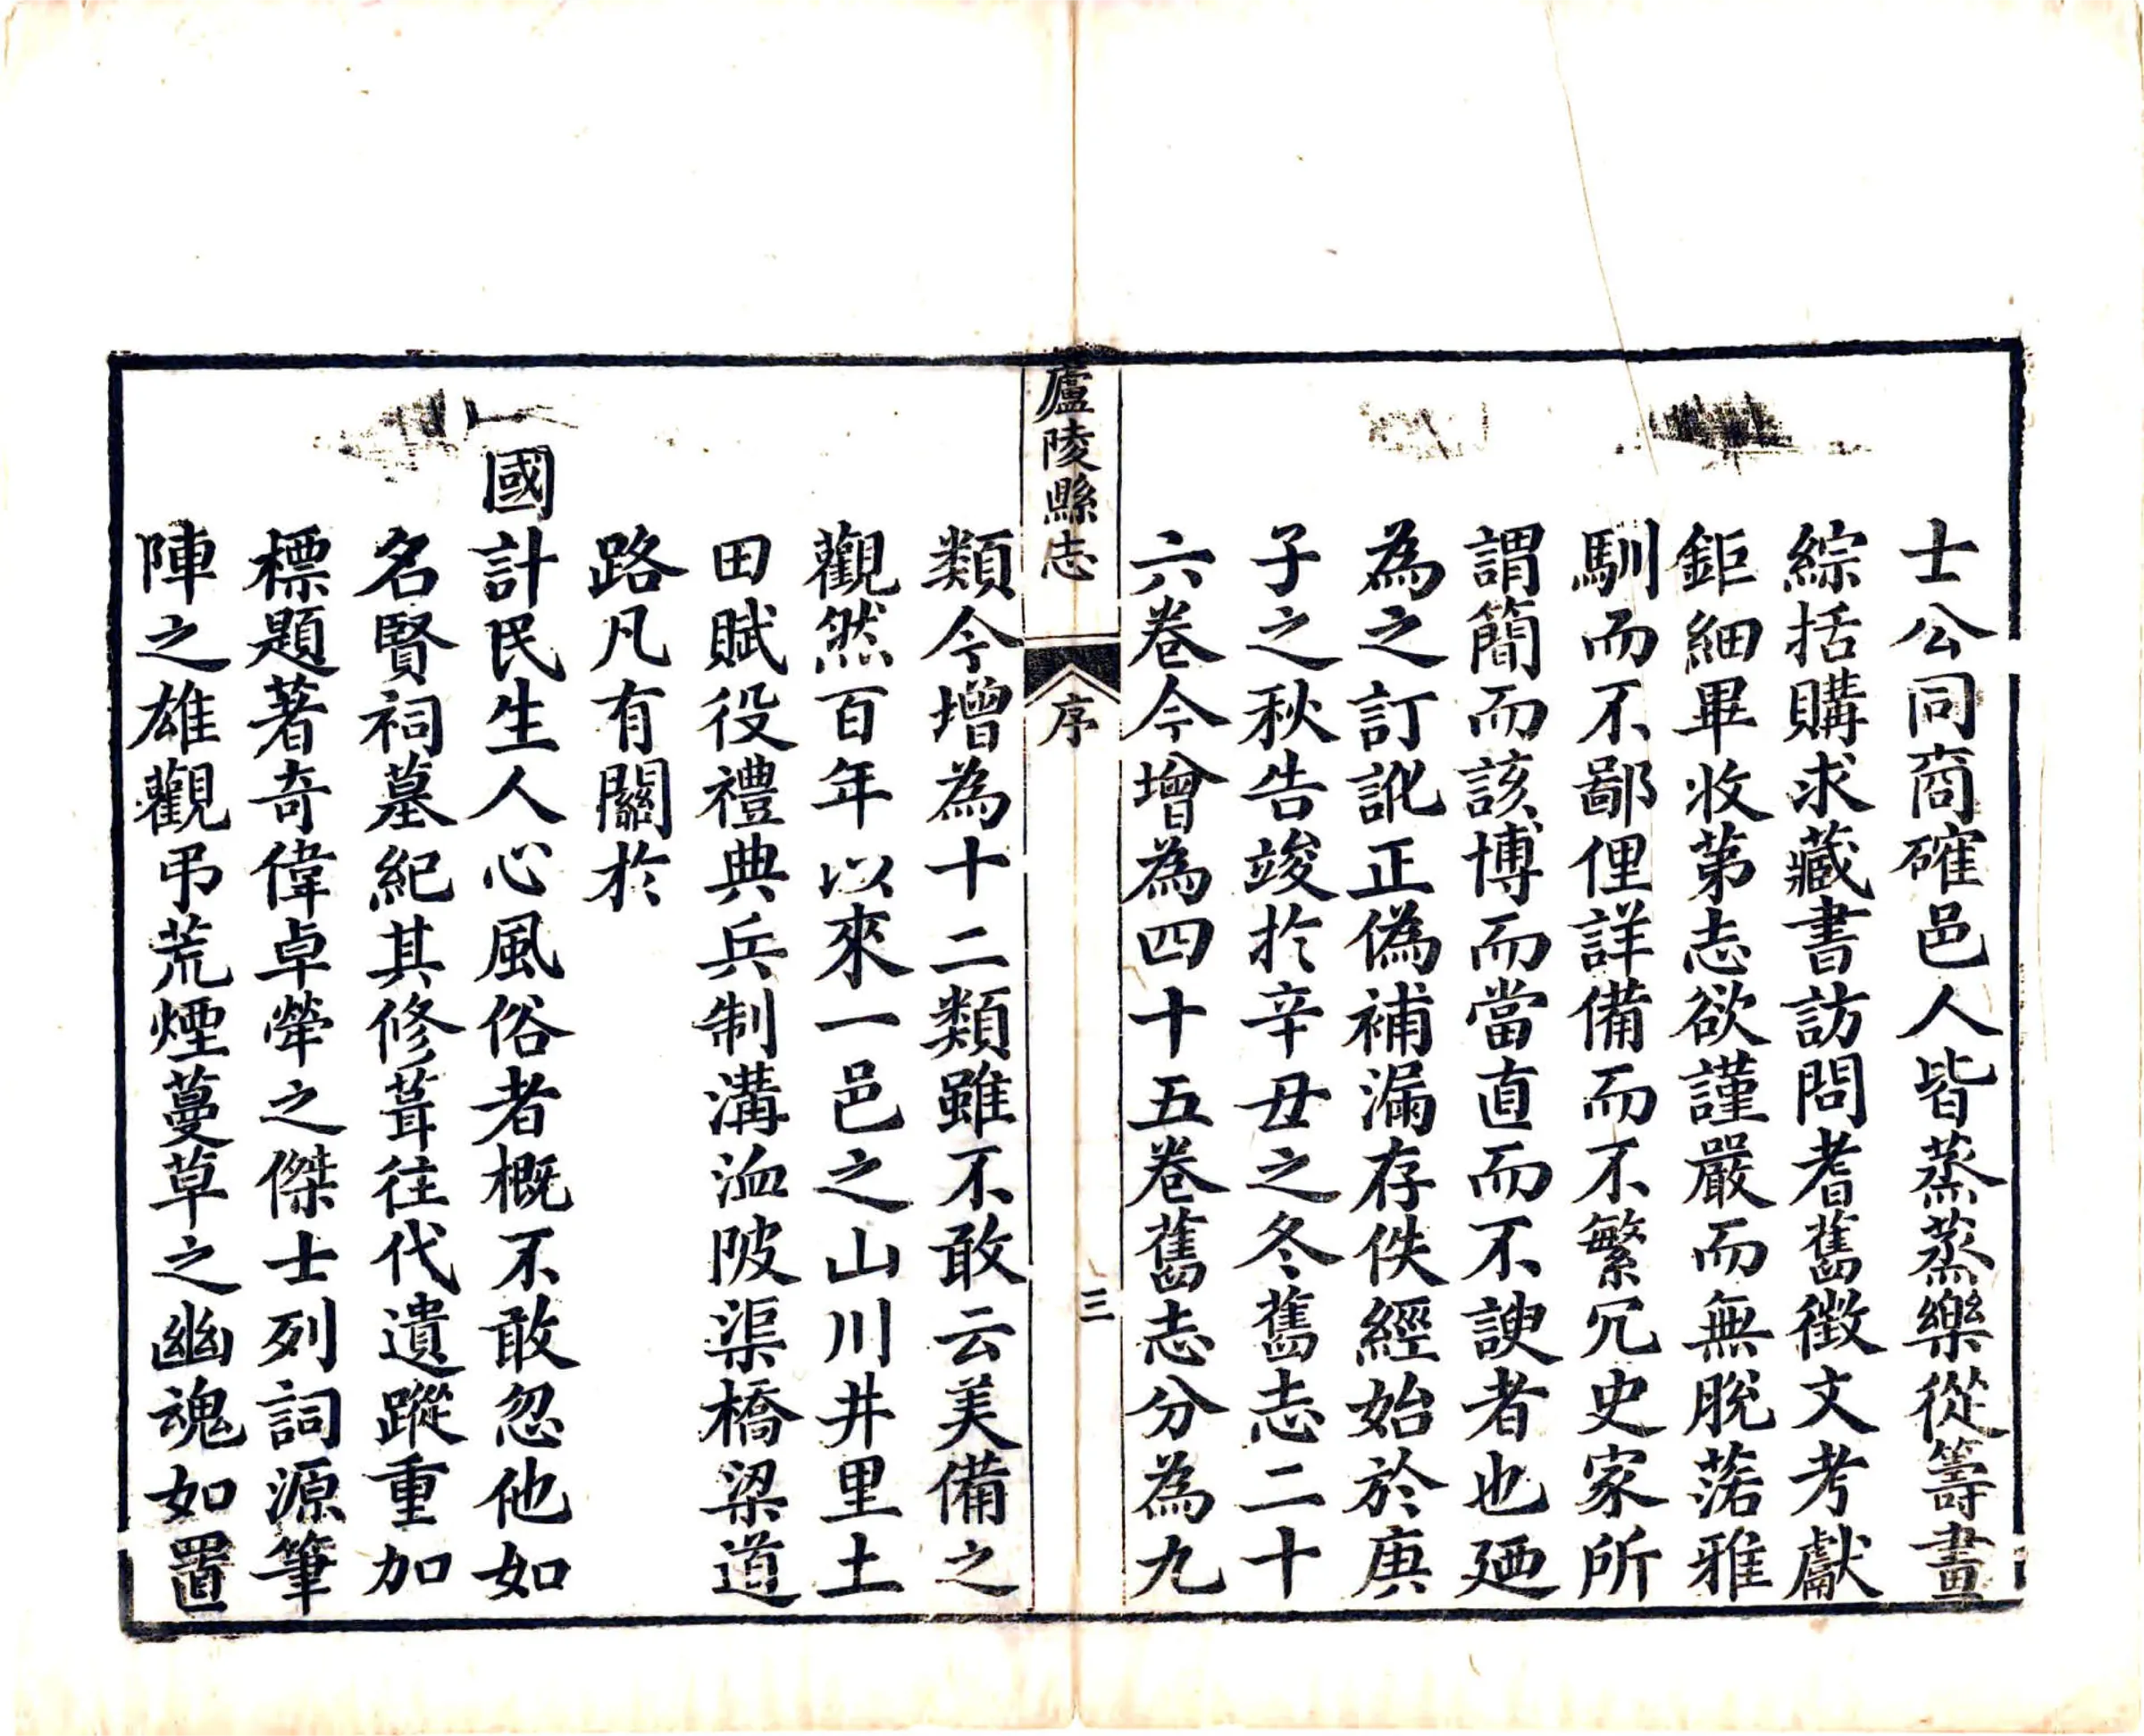 士公同商確邑人皆蒸蒸樂從籌畫
綜括購求藏書訪問耆舊徵文考獻
鉅細畢收第志欲謹嚴而無脫落雅
馴而不鄙俚詳備而不繁冗史家所
謂簡而該博而當直而不諛者也廼
為之訂訛正偽補漏存佚經始於庚
子之秋告竣於辛丑之冬舊志二十
六卷今增為四十五卷舊志分為九
廬陵縣志
序
三
類今增為十二類雖不敢云美備之
觀然百年以來一邑之山川井里土
田賦役禮典兵制溝洫陂渠橋梁道
路凡有關於
國計民生人心風俗者概不敢忽他如
名賢祠墓紀其修葺往代遺蹤重加
標題著奇偉卓犖之傑士列詞源筆
陣之雄觀弔荒煙蔓草之幽魂如置